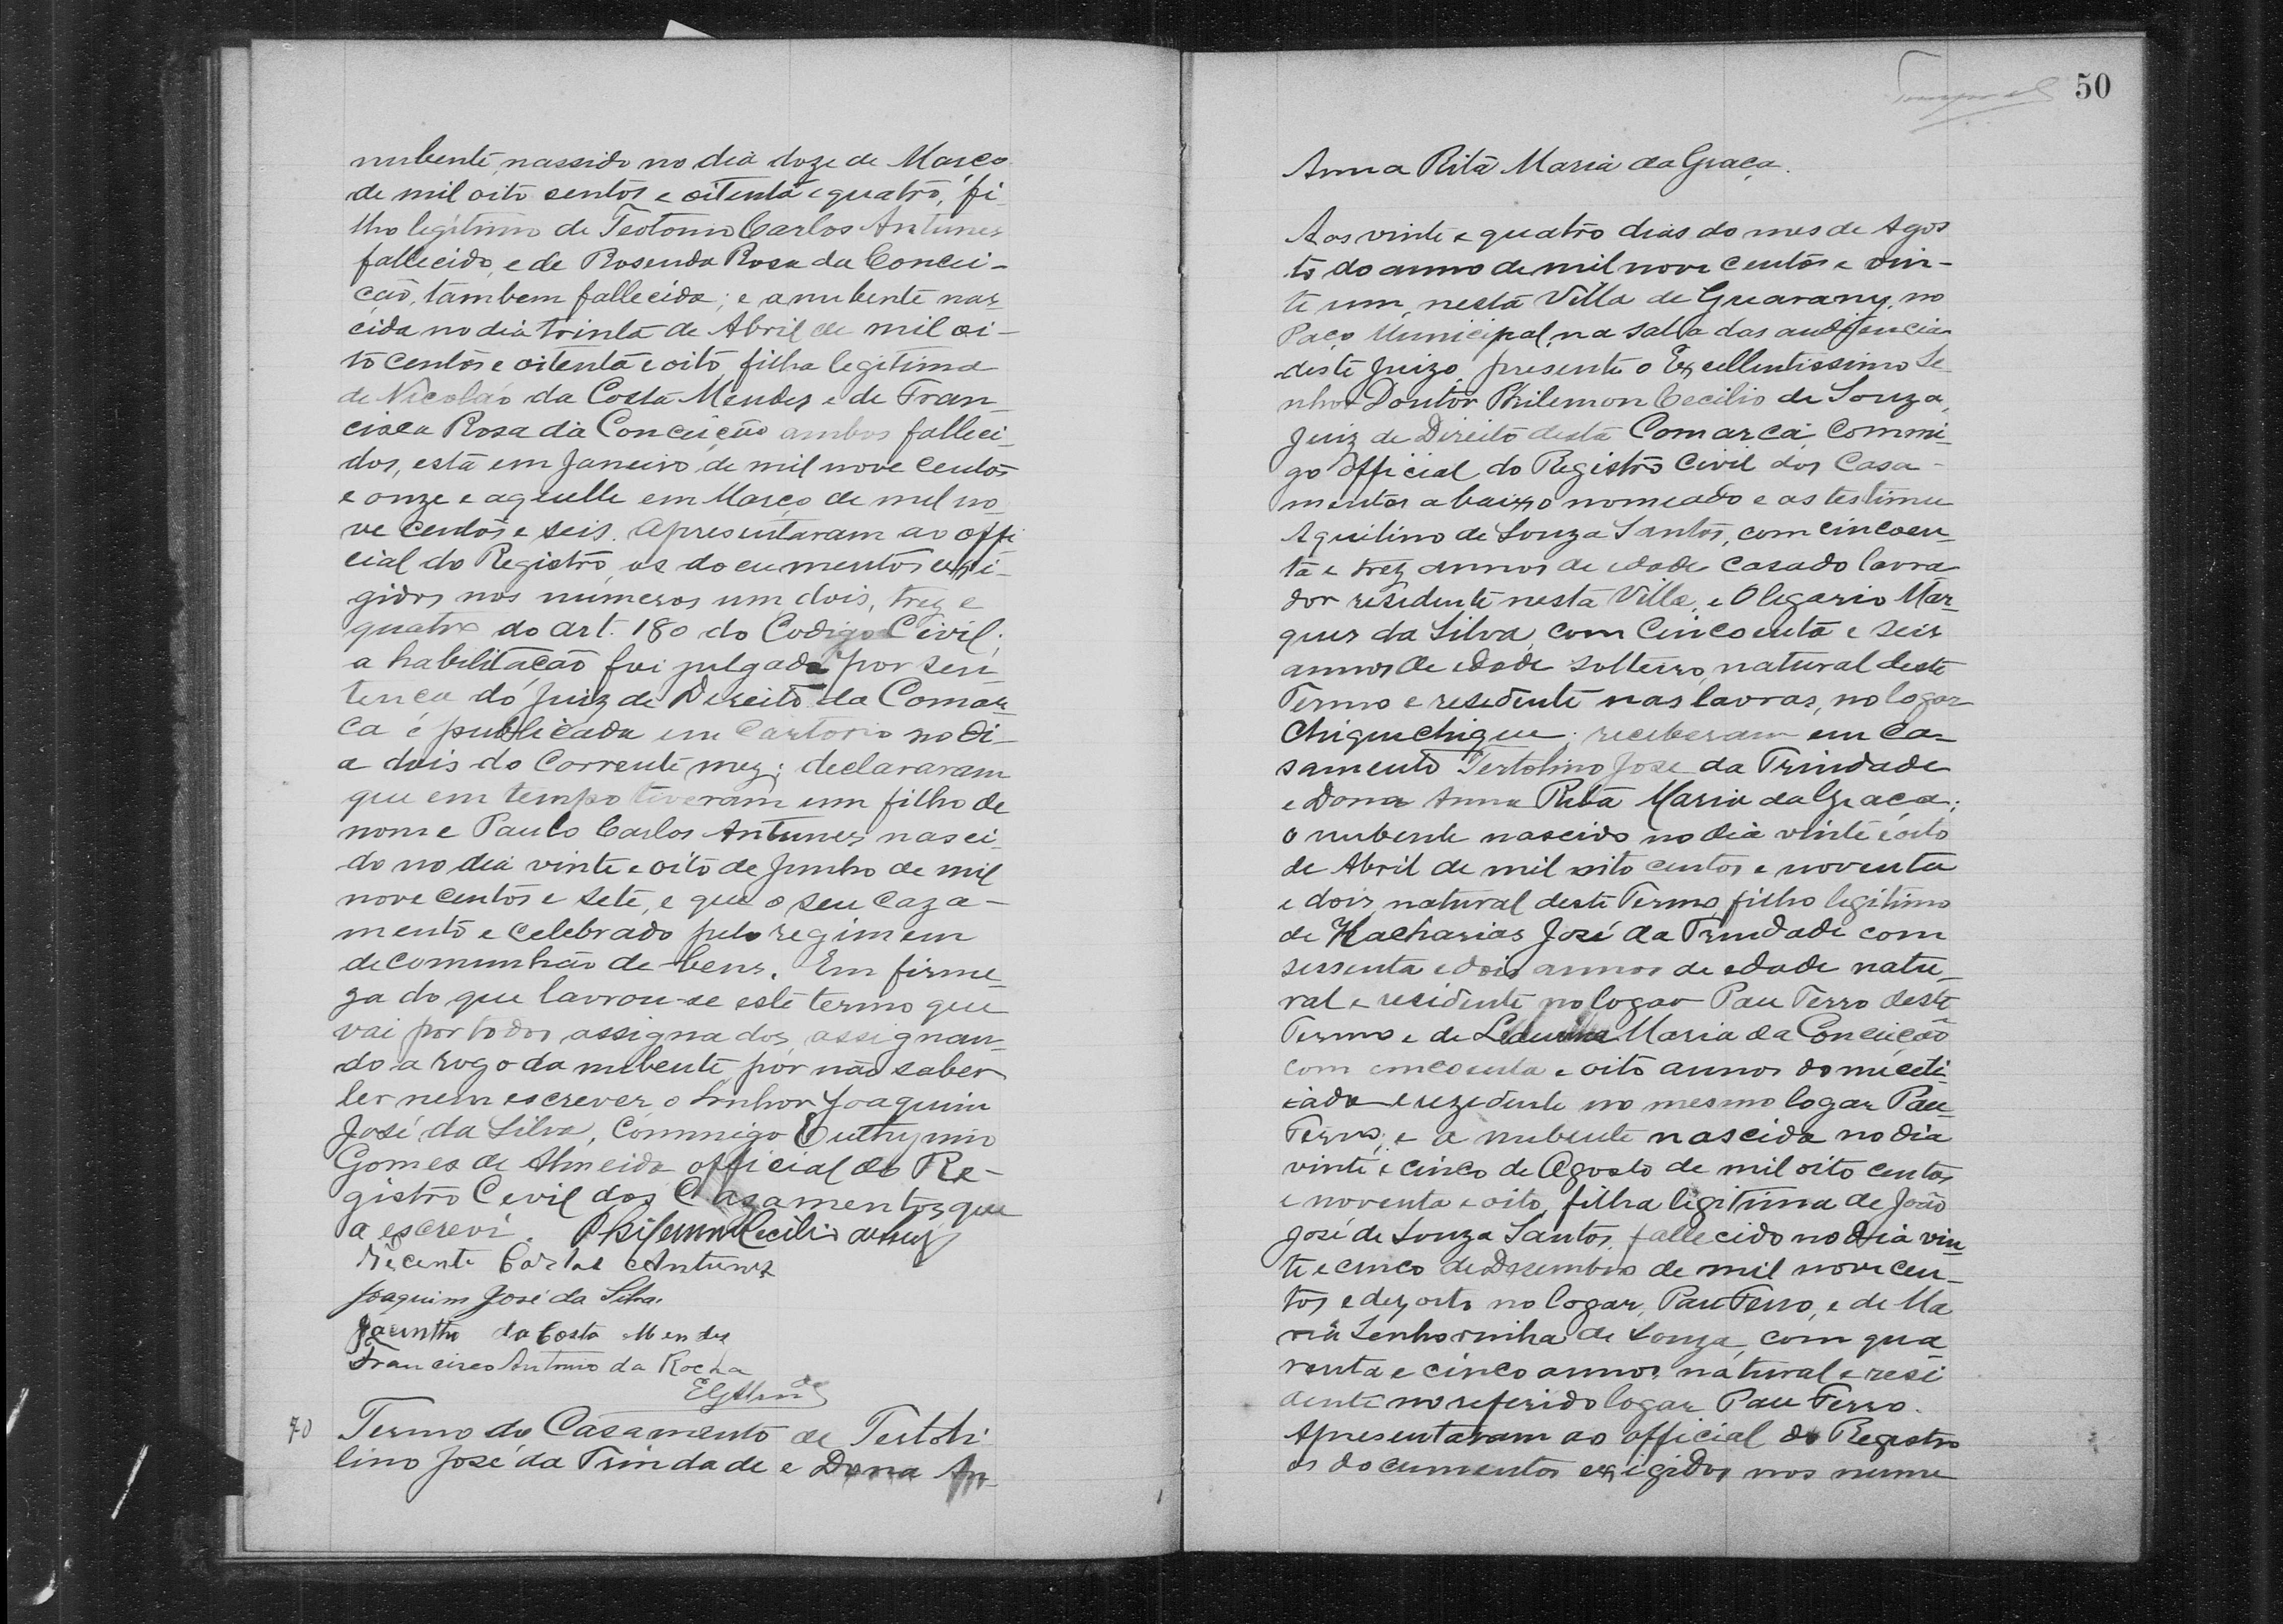 nubente, nassido no dia doze de Março
de mil oito sentos e oitenta e quatro, fi-
lho legitimo de Teotonio Carlos Antunes
fallecido, e de Rosenda Rosa da Concei-
ção, tambem fallecida; e a nubente nas-
cida no dia trinta de Abril de mil oi-
to centos e oitenta e oito, filha legitima
de Nicoláo da Costa Mendes e de Fran-
cisca Rosa da Conceição ambos falleci-
dos, esta em Janeiro de mil nove centos
e onze e aquelle em Março de mil no-
ve centos e seis. Apresentaram ao offi-
cial do Registro, os documentos exi-
gidos nos numeros um dois, trez e
quatro do art. 180 do Codigo Civil;
a habilitação foi julgada por sen-
tença do Juiz de Direito da Comar-
ca e publicada em Cartorio no di-
a dois do Corrente mez; declararam
que em tempo tiveram um filho de
nome Paulo Carlos Antunes nasci-
do no dia vinte e oito de Junho de mil
nove centos e sete, e que o seu caza-
mento e celebrado pelo regimem
de comunhão de bens. Em firme-
za do que lavrou-se este termo que
vai por todos assignados, assignan-
do a rogo da nubente por não saber
ler nem escrever o Senhor Joaquim
José da Silva, Commigo Euthymio
Gomes de Almeida official do Re-
gistro Cevil dos Casamentos que
a escrevi. Philemon Cecilio de Souza
Vicente Carlos Antunes
Joaquim José da Silva.
Jacintho da Costa Mendes
Francisco Antonio da Rocha
EGAlmda
70 Termo do Casamento de Tertoli-
lino José da Trindade e Dona An-
50
Anna Rita Maria da Graça.
Aos vinte e quatro dias do mes de Agos
to do anno de mil nove centos e vin-
te um, nesta Villa de Guarany, no
Paço Municipal, na salla das audiencias
deste Juizo, presente o Excellentissimo Se-
nhor Doutor Philemon Cecilio de Souza,
Juiz de Direito desta Comarca, Commi-
go official do Registro Civil dos Casa-
mentos abaixo nomeado e as testimu
Aquilino de Souza Santos, com cincoen-
ta e trez annos de edade casado lavra
dor residente nesta Villa, e Olegario Mar-
ques da Silva, com Cincoenta e seis
annos de edade solteiro, natural deste
Termo e resedente nas lavras, no logar
Chiquechique; receberam em Ca-
samento Tertolino José da Trindade
e Dona Anna Rita Maria da Graça;
o nubente nascido no dia vinte e oito
de Abril de mil oito centos e noventa
e dois, natural deste Termo, filho legitimo
de Zacharias José da Trindade com
sessenta e dois annos de edade natu-
ral e residente no logar Pau Ferro deste
Termo e de Maria da Conceição
com cincoenta e oito annos domicili-
ada e rezedente no mesmo logar Pau
Ferro; e a nubente nascida no dia
vinte e cinco de Agosto de mil oito centos
e noventa e oito, filha legitima de João
José de Souza Santos, fallecido no dia vin-
te e cinco de Dezembro de mil nove cen-
tos e dezoito no logar Pau Ferro, e de Ma
ria Senhorinha de Souza, com qua
renta e cinco annos, natural e resi
dente no referido logar Pau Ferro.
Apresentaram ao official do Registro
os documentos exigidos nos nume